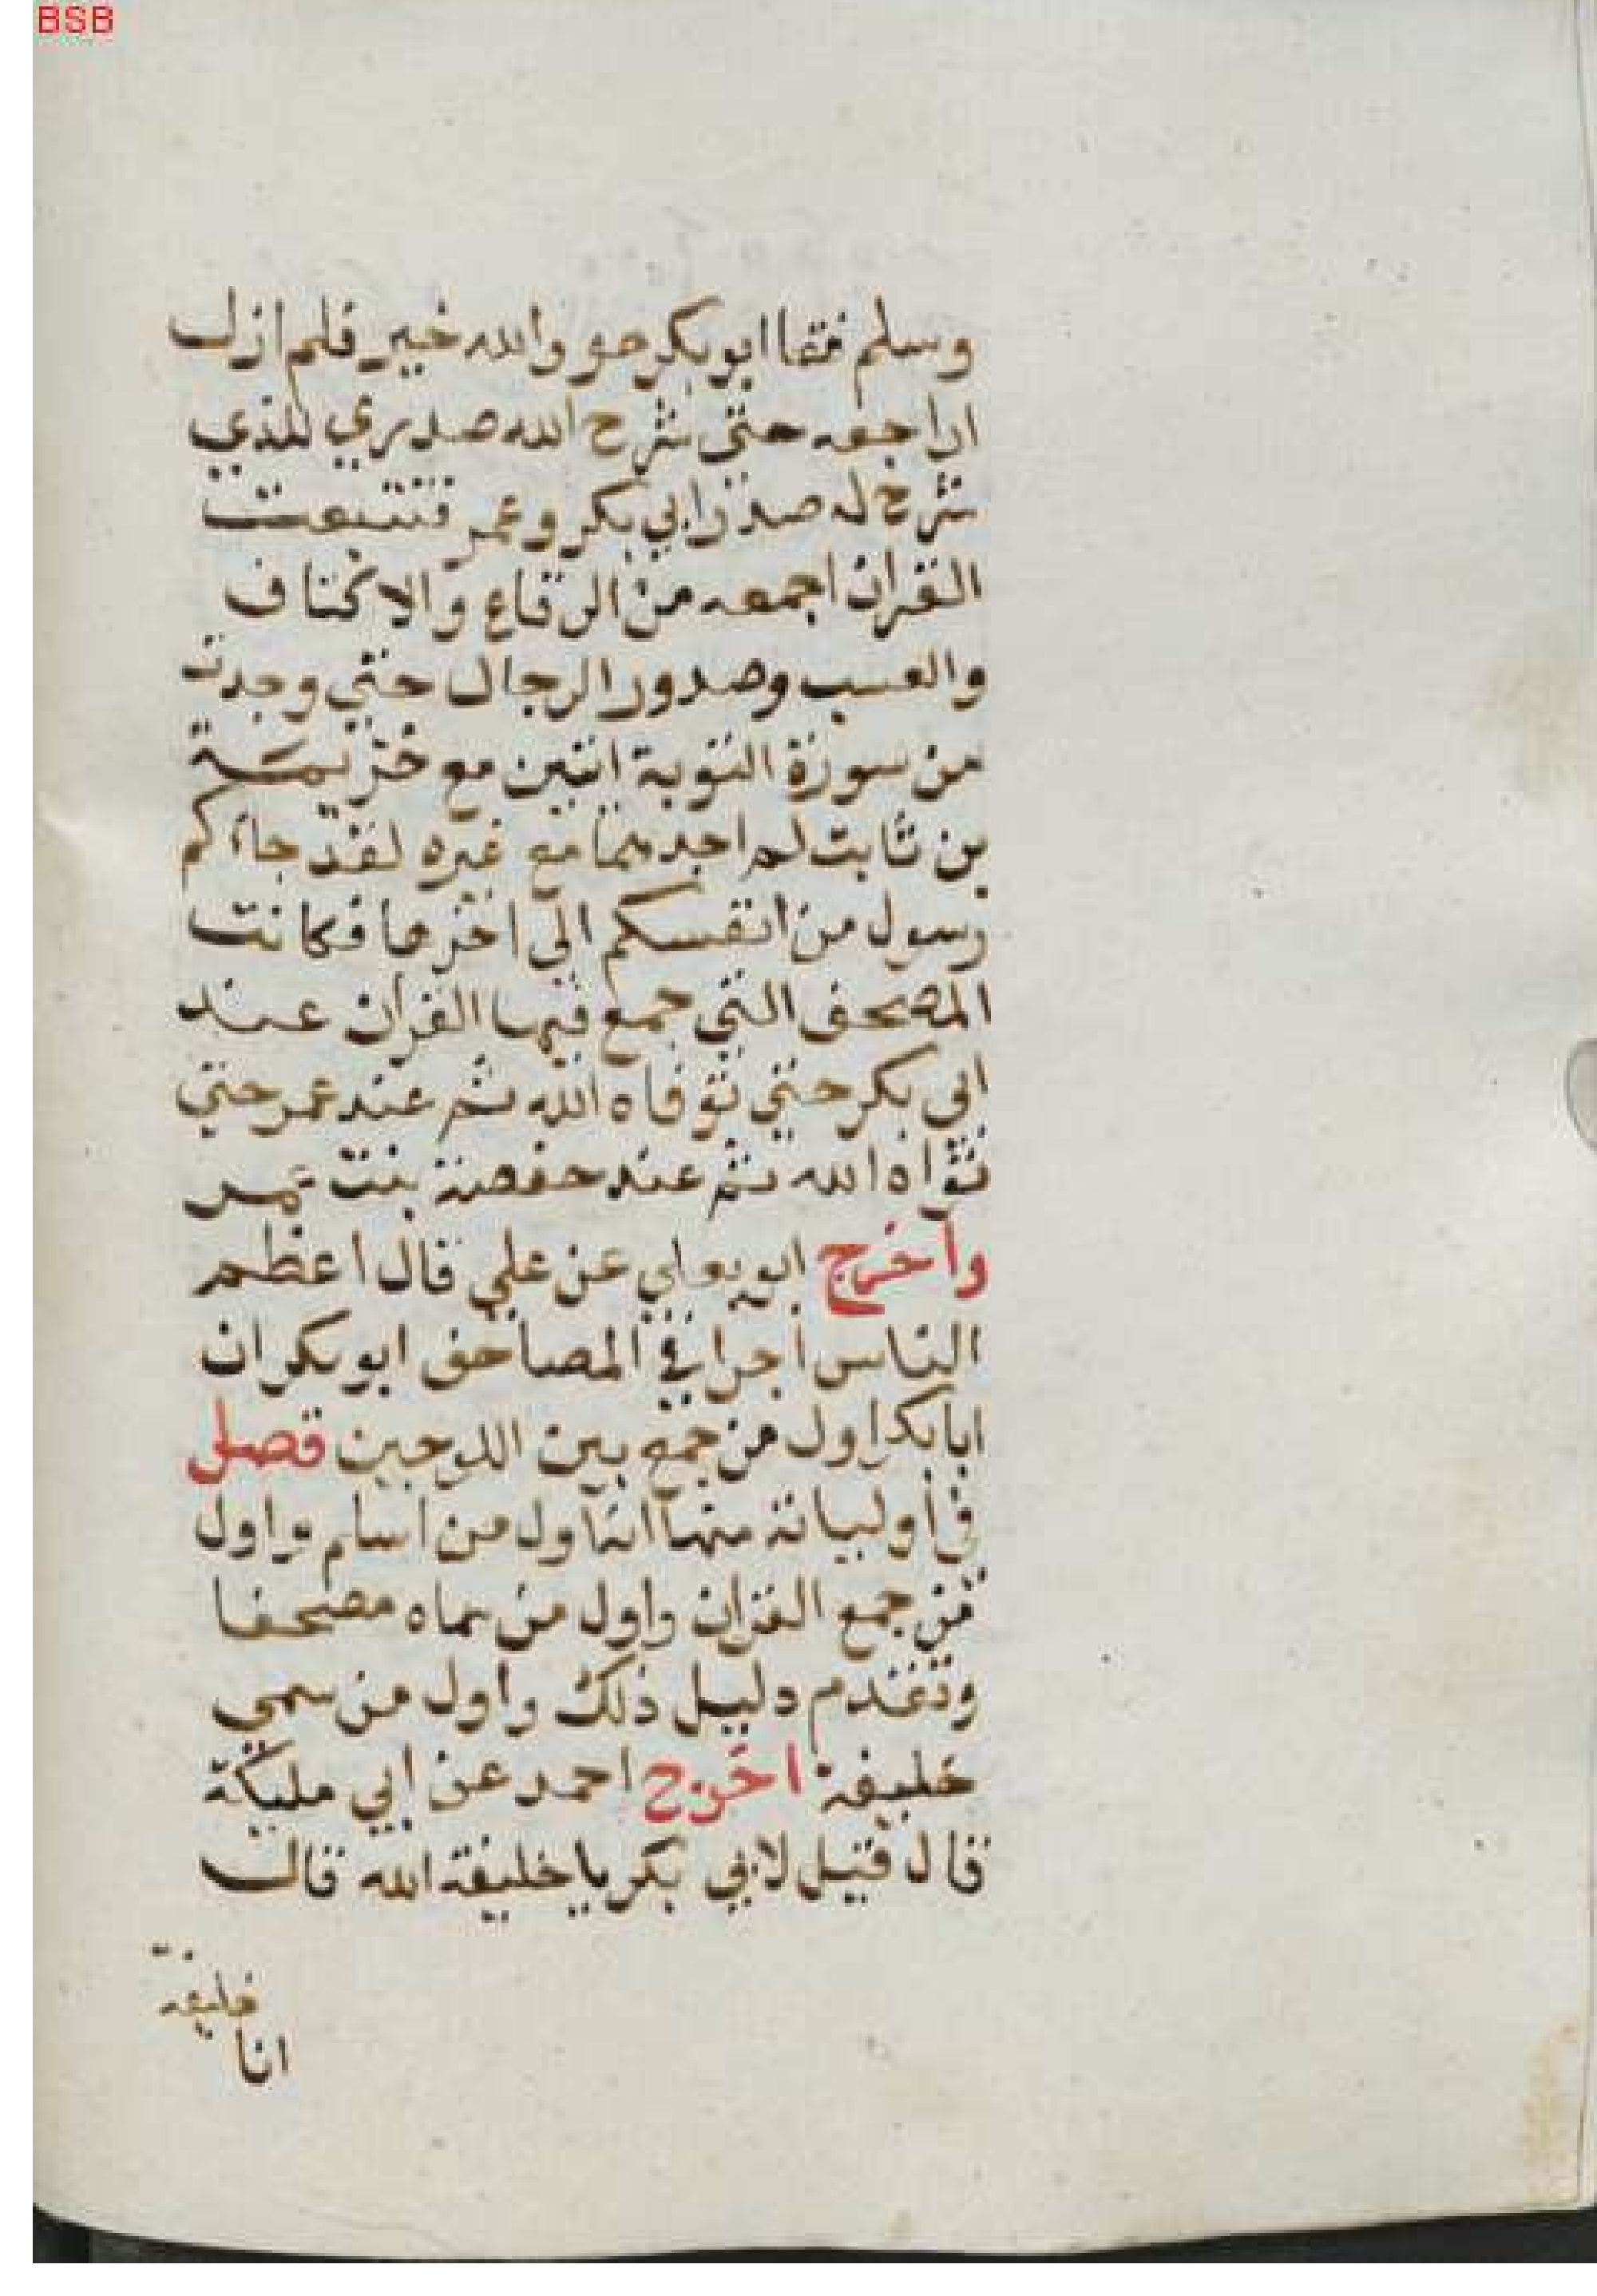 BSB
وسلم فقا ابو بكر هو والله خير فلم ازل
اراجعه حتى شرح الله صدري للذي
شرح له صدر ابي بكر وعمر فتتبعت
القران اجمعه من الرقاع والاكتاف
والعسب وصدور الرجال حتي وجدت
من سورة التوبة ايتين مع خزيمة
بن ثابت لم اجدهما مع غيره لقد جاءكم
رسول من انفسكم الى اخرها فكانت
المصحف التي جمع فيها القران عند
ابي بكر حتي توفاه الله ثم عند عمر حتي
توفاه الله ثم عند حفصة بنت عمر
واخرج ابو يعلي عن علي قال اعظم
الناس اجرا في المصاحف ابو بكر ان
ابا بكر اول من جمع بين اللوحين فصل
في اولياته منها انه اول من اسلم واول
من جمع القران واول من سماه مصحفا
وتقدم دليل ذلك واول من سمي
خليفة اخرج احمد عن ابي مليكة
قال قيل لابي بكر يا خليفة الله قال
خليفة
انا